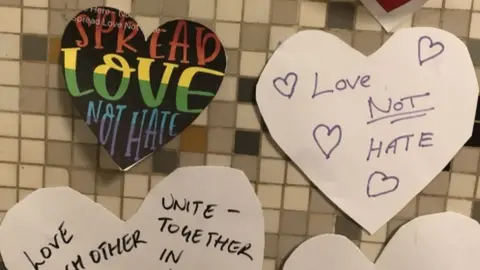 Spread Love Not
SPREAD
LOVE
NOT HATE
Love
NOT
HATE
LOVE
OTHER
UNITE -
TOGETHER
IN